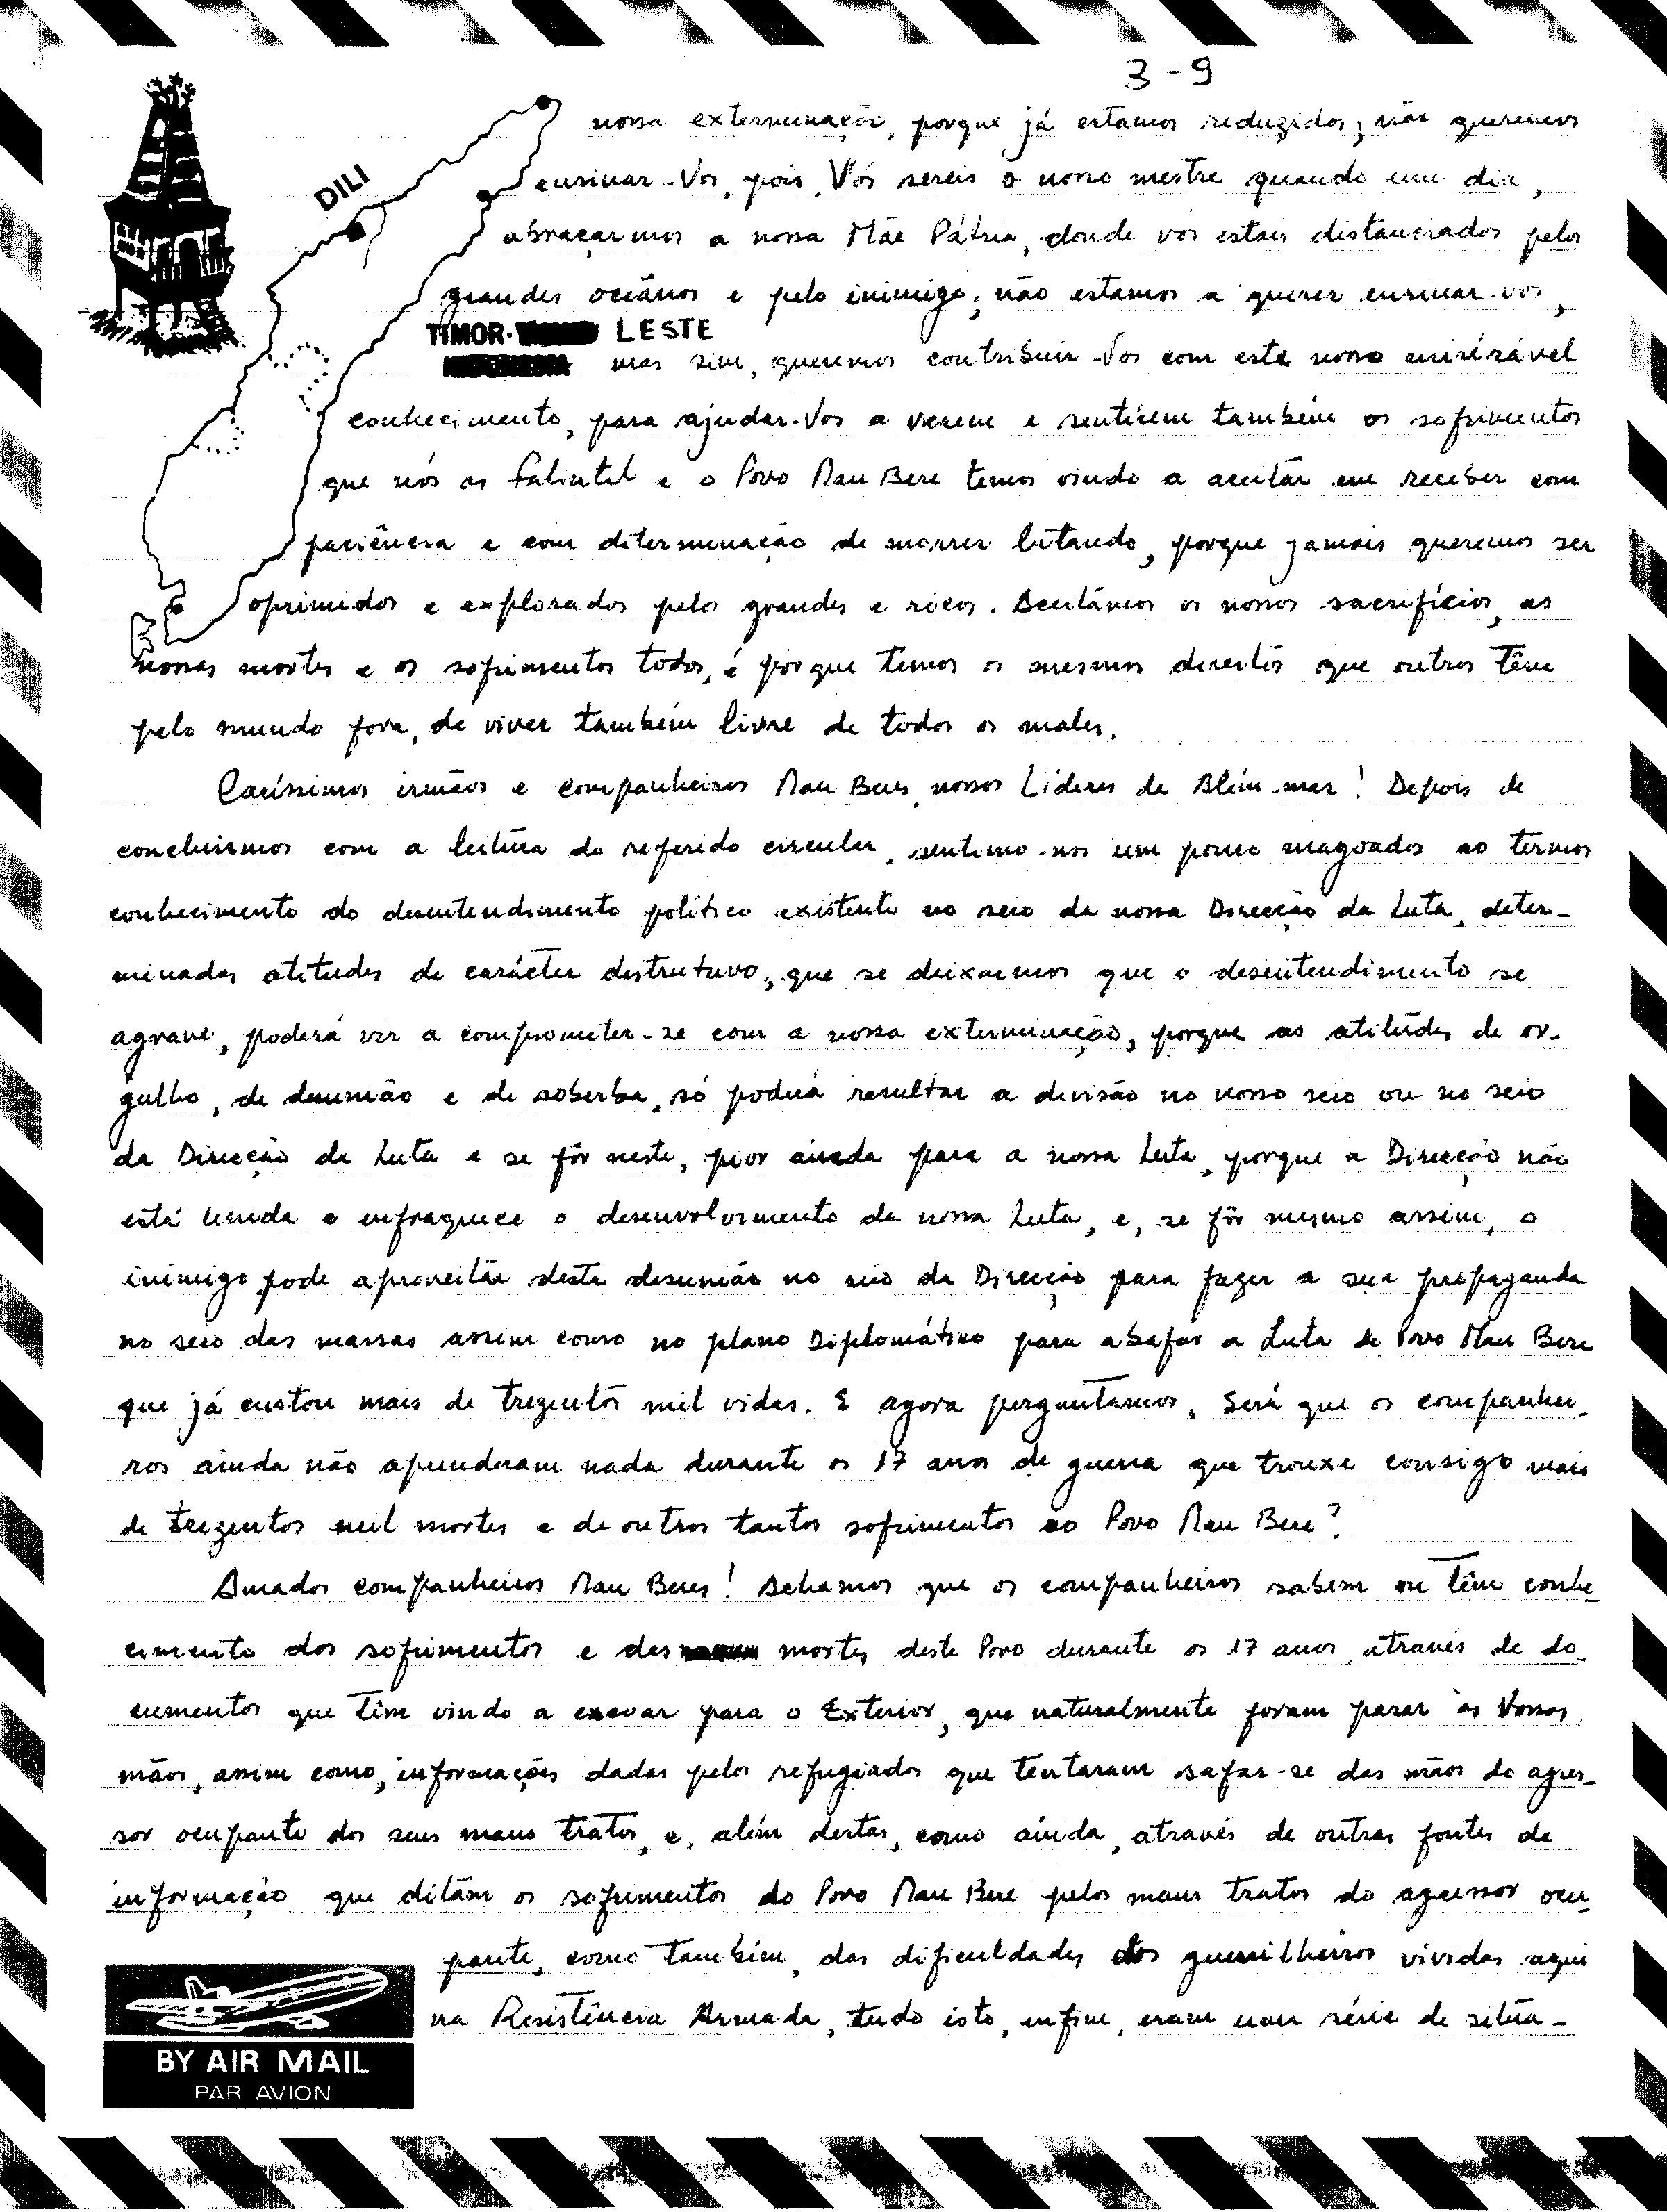 3 - 9
nossa exterminação, porque já estamos reduzidos; não queremos
DILI
ensinar-Vos, pois, Vós sereis o nosso mestre quando um dia,
abraçarmos a nossa Mãe Pátria, donde vos estais distanciados pelos
grandes oceânos e pelo inimigo; não estamos a querer ensinar-vos,
TIMOR· LESTE
mas sim, queremos contribuir-Vos com este nosso misérável
conhecimento, para ajudar-Vos a verem e sentirem também os sofrimentos
que nós as Falintil e o Povo Mau Bere temos vindo a aceitar em receber com
paciência e com determinação de morrer lutando, porque jamais queremos ser
oprimidos e explorados pelos grandes e ricos. Aceitámos os nossos sacrifícios, as
nossas mortes e os sofrimentos todos, é porque temos os mesmos direitos que outros têm
pelo mundo fora, de viver também livre de todos os males.
Caríssimos irmãos e companheiros Mau Beres, nossos Líderes de Além-mar! Depois de
concluirmos com a leitura do referido circular, sentimo-nos um pouco magoados ao termos
conhecimento do desentendimento político existente no seio da nossa Direcção da Luta, deter-
minadas atitudes de carácter destrutivo, que se deixarmos que o desentendimento se
agrave, poderá vir a comprometer-se com a nossa exterminação, porque as atitudes de or-
gulho, de desunião e de soberba, só poderá resultar a divisão no nosso seio ou no seio
da Direcção da Luta e se fôr neste, pior ainda para a nossa Luta, porque a Direcção não
está unida e enfraquece o desenvolvimento da nossa Luta, e, se fôr mesmo assim, o
inimigo pode aproveitar desta desunião no seio da Direcção para fazer a sua propaganda
no seio das massas assim como no plano Diplomático para abafar a Luta do Povo Mau Bere
que já custou mais de trezentos mil vidas. E agora perguntamos, Será que os companhei-
ros ainda não aprenderam nada durante os 17 anos de guerra que trouxe consigo mais
de trezentos mil mortes e de outros tantos sofrimentos ao Povo Mau Bere?
Amados companheiros Mau Beres! Achamos que os companheiros sabem ou têm conhe
cimento dos sofrimentos e das mortes deste Povo durante os 17 anos, através de do-
cumentos que têm vindo a enviar para o Exterior, que naturalmente foram parar às Vossas
mãos, assim como, informações dadas pelos refugiados que tentaram safar-se das mãos do agres-
sor ocupante dos seus maus tratos, e, além destas, como ainda, através de outras fontes de
informação que ditam os sofrimentos do Povo Mau Bere pelos maus tratos do agressor ocu-
pante, como também, das dificuldades dos guerrilheiros vividas aqui
na Resistência Armada, tudo isto, enfim, eram uma série de situa-
BY AIR MAIL
PAR AVION